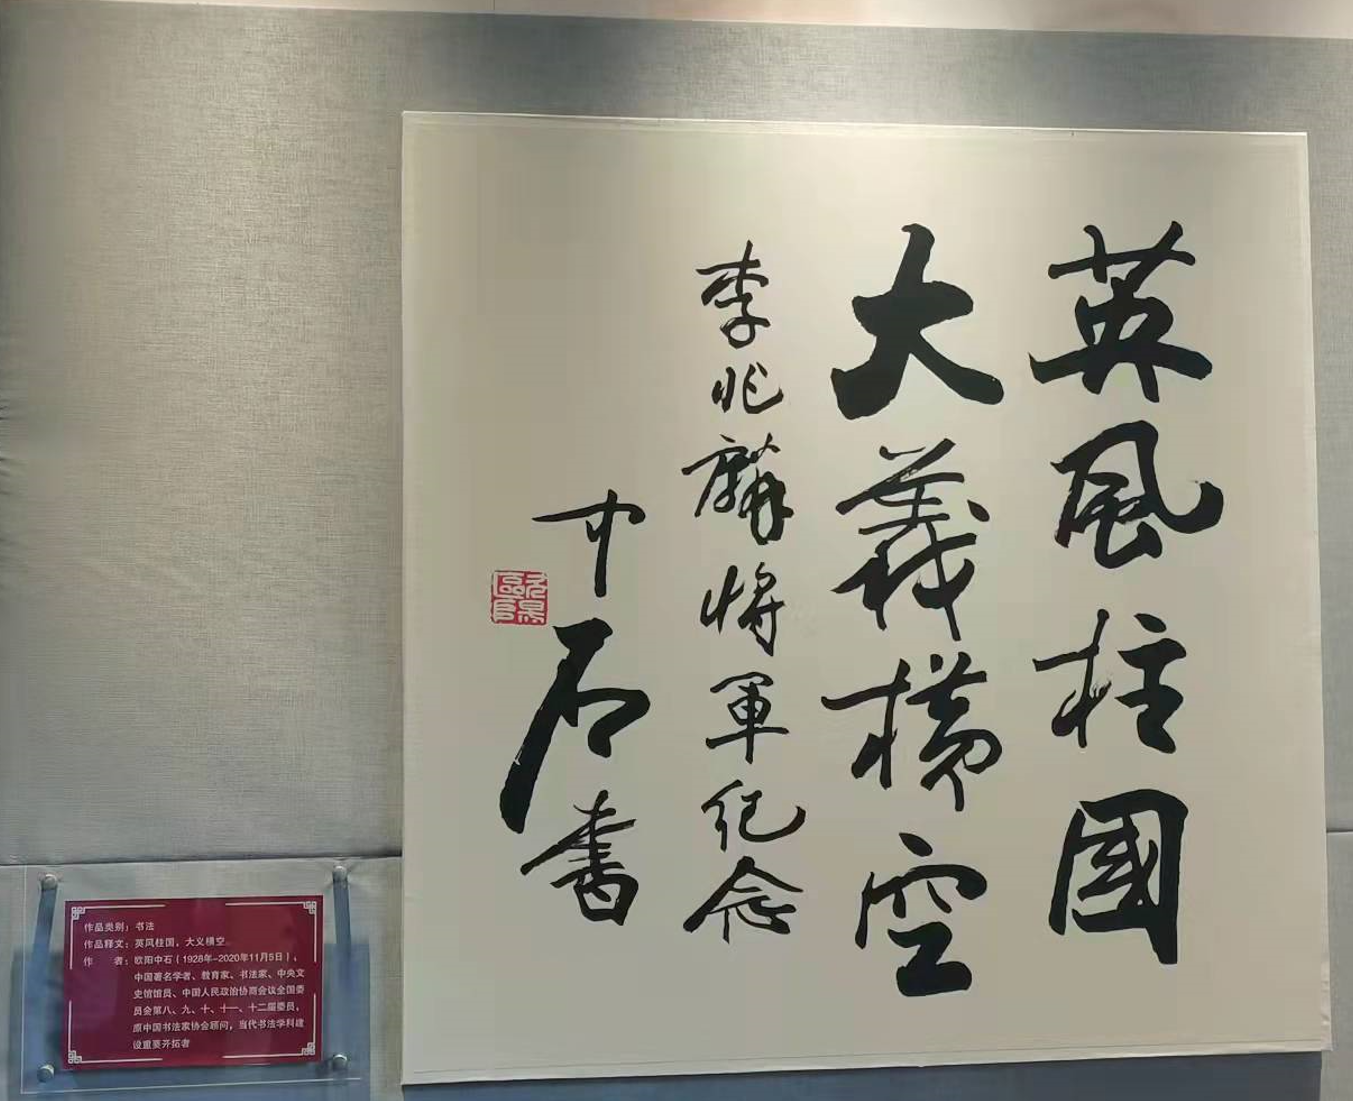 英風柱國
大義橫空
李兆麟將軍纪念
中石書
欧阳中石
作品类别：书法
作品释文：英风柱国，大义横空
作　　者：欧阳中石（1928年-2020年11月5日），
中国著名学者、教育家、书法家、中央文
史馆馆员、中国人民政治协商会议全国委
员会第八、九、十、十一、十二届委员，
原中国书法家协会顾问，当代书法学科建
设重要开拓者